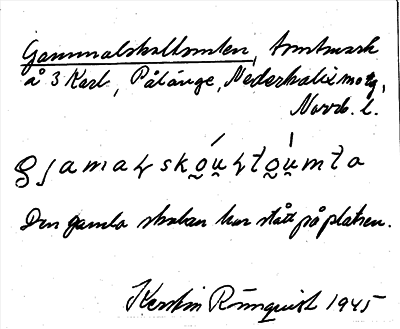 Gammalskoltomten, tomtmark
å 3 Karl, Pålänge, Nederkalix mtg,
Norrb. l.
Den gamla skolan har stått på platsen.
Kerstin Rönnquist 1945